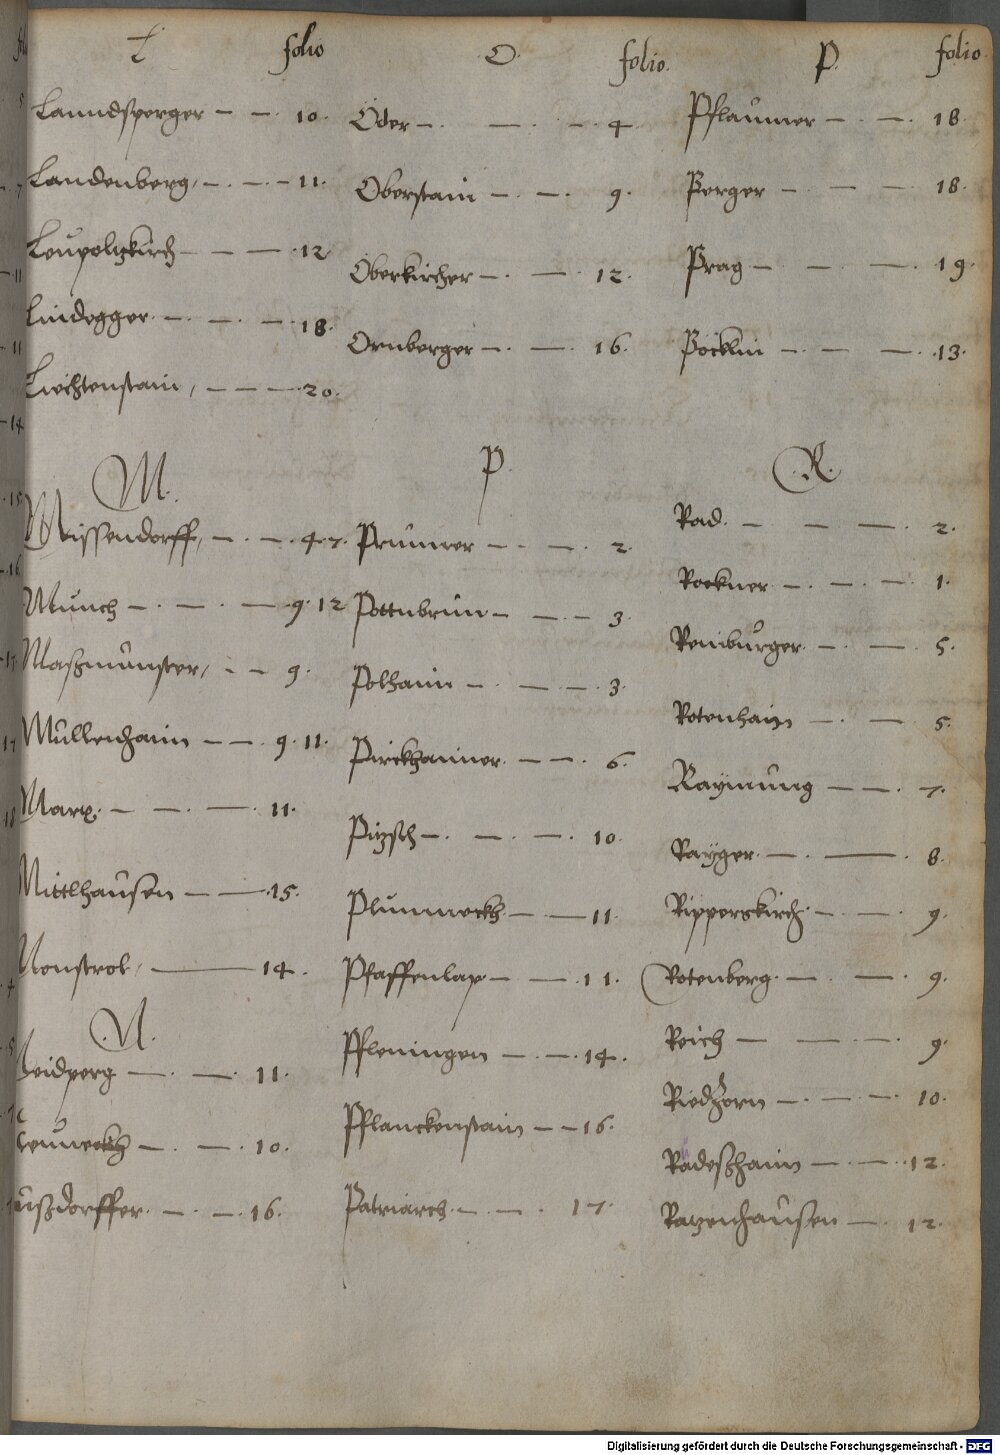 L folio
Lanndsperger 10.
Landenberg 11.
Leupoltzkirch 12
Lindegger 18.
Liechtenstain, 20.
M.
Missendorff, 4. 7.
Munch 9. 12
Maßmünster, 9.
Müllenhaim 9. 11.
Marx. 11.
Mittlhausen 15.
Monstrol, 14.
N.
Neidperg 11.
10.
16.
O. folio.
Oder 4
Oberstain 9.
Oberkircher 12.
Ornberger 16.
P.
Prunner 2.
Pottnbrun 3.
Polhaim 3.
Pirckhaimer. 6.
Pitzsch 10.
Plumneckh 11.
Pfaffenlap 11.
Pfleningen 14.
Pflanckenstain 16.
Patriarch 17.
P. folio
Pflaumer 18
Perger 18.
Prag 19.
Pöcklin 13.
R.
Rad. 2.
Rockner 1.
Reniburger 5.
Rotenhain 5.
Raymung 7.
Rayger 8.
Ripperskirch 9.
Rotenberg 9.
Reich 9.
Riedhorn 10.
Radeßhaim 12.
Ratzenhausen 12.
Digitalisierung gefördert durch die Deutsche Forschungsgemeinschaft - DFG